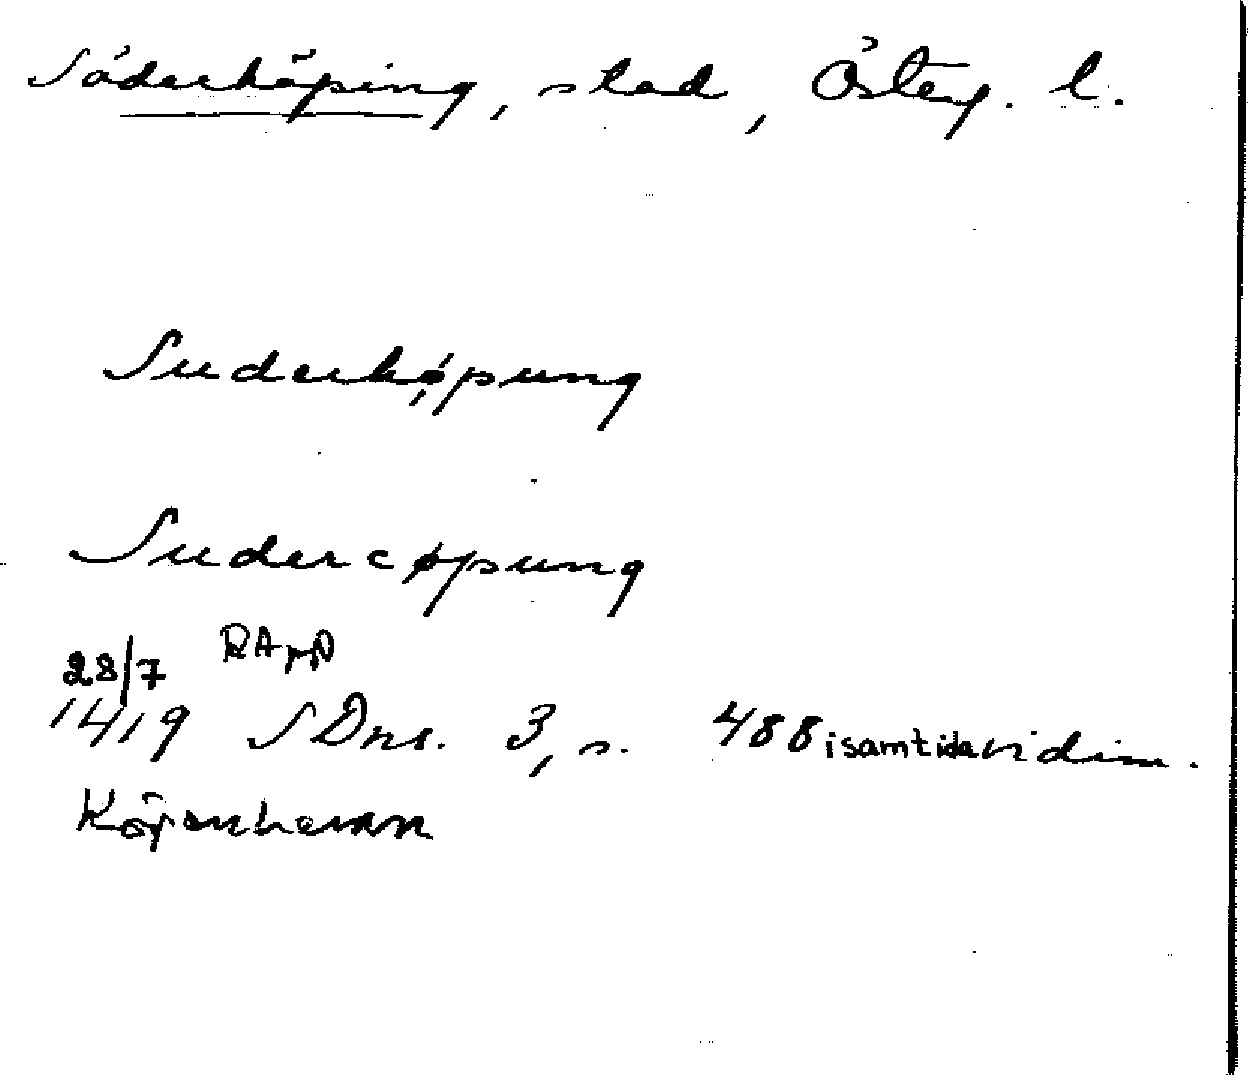 Söderköping, stad, Österg. l.
Suderkøpung
Sudercøpung
28/7 RApp
1419 SDns. 3, s. 488 i samtida vidim.
Köpenhamn